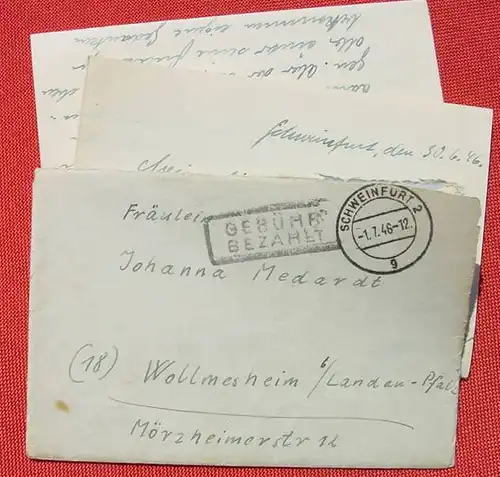 alle einander seine
gen. Aber
Schweinfurt, den 30.6.46.
Fräulein
GEBÜHR
BEZAHLT
SCHWEINFURT 2
-1.7.46-12.
g
Johanna Medardt
(18) Wollmesheim b/Landau-Pfalz
Mörzheimerstr 12